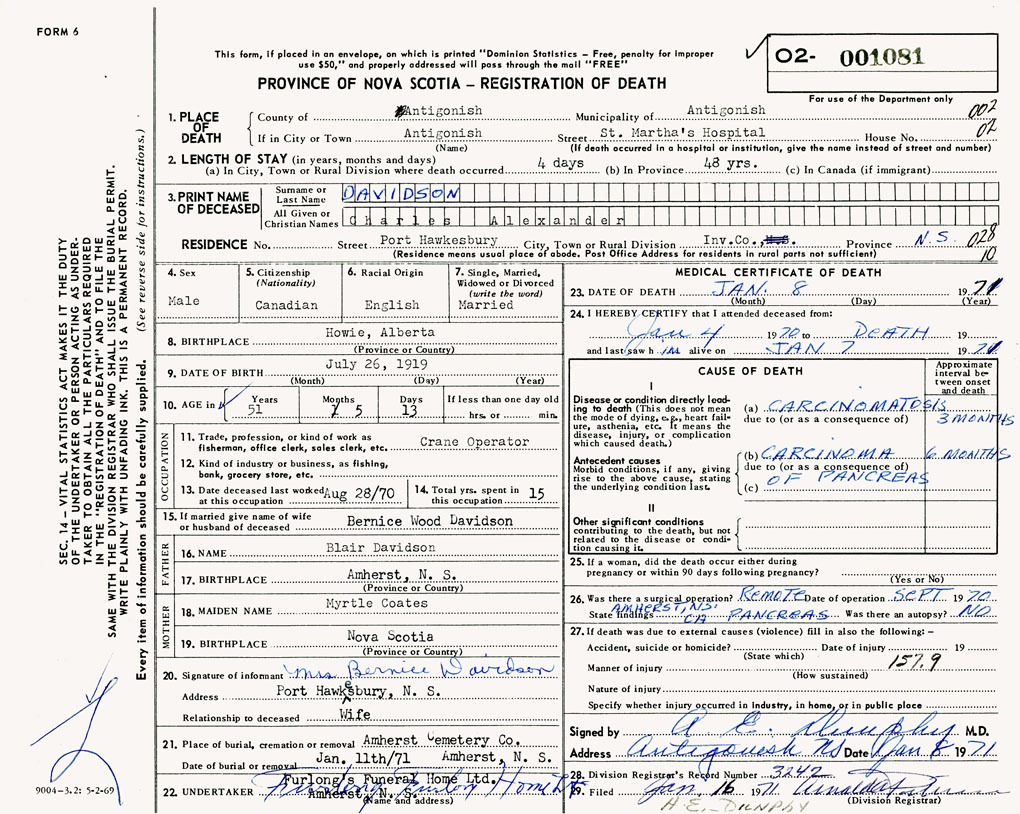 FORM 6
This form, if placed in an envelope, on which is printed "Dominion Statistics – Free, penalty for improper
use $50," and properly addressed will pass through the mail "FREE"
PROVINCE OF NOVA SCOTIA – REGISTRATION OF DEATH
O2- 001081
For use of the Department only
1. PLACE OF DEATH
County of Antigonish Municipality of Antigonish 002
If in City or Town Antigonish Street St. Martha's Hospital House No. 02
(Name) (If death occurred in a hospital or institution, give the name instead of street and number)
2. LENGTH OF STAY (in years, months and days)
(a) In City, Town or Rural Division where death occurred 4 days (b) In Province 48 yrs. (c) In Canada (if immigrant)
3. PRINT NAME OF DECEASED
Surname or Last Name DAVIDSON
All Given or Christian Names Charles Alexander
RESIDENCE No. Street Port Hawkesbury City, Town or Rural Division Inv.Co., Province N.S. 028
(Residence means usual place of abode. Post Office Address for residents in rural parts not sufficient) 10
4. Sex
Male
5. Citizenship
(Nationality)
Canadian
6. Racial Origin
English
7. Single, Married,
Widowed or Divorced
(write the word)
Married
8. BIRTHPLACE Howie, Alberta
(Province or Country)
9. DATE OF BIRTH July 26, 1919
(Month) (Day) (Year)
10. AGE in
Years
51
Months
5
Days
13
If less than one day old
hrs. or min.
OCCUPATION
11. Trade, profession, or kind of work as
fisherman, office clerk, sales clerk, etc. Crane Operator
12. Kind of industry or business, as fishing,
bank, grocery store, etc.
13. Date deceased last worked
at this occupation Aug 28/70
14. Total yrs. spent in
this occupation 15
15. If married give name of wife
or husband of deceased Bernice Wood Davidson
FATHER
16. NAME Blair Davidson
17. BIRTHPLACE Amherst, N. S.
(Province or Country)
MOTHER
18. MAIDEN NAME Myrtle Coates
19. BIRTHPLACE Nova Scotia
(Province or Country)
20. Signature of informant Mrs Bernice Davidson
Address Port Hawkesbury, N. S.
Relationship to deceased Wife
21. Place of burial, cremation or removal Amherst Cemetery Co.
Date of burial or removal Jan. 11th/71 Amherst, N. S.
22. UNDERTAKER Furlong's Funeral Home Ltd.
Amherst, N. S.
(Name and address)
MEDICAL CERTIFICATE OF DEATH
23. DATE OF DEATH JAN. 8 1971
(Month) (Day) (Year)
24. I HEREBY CERTIFY that I attended deceased from:
Jan 4 1970 to DEATH 19
and last saw him alive on JAN 7 1971
CAUSE OF DEATH
Approximate
interval be-
tween onset
and death
I
Disease or condition directly lead-
ing to death (This does not mean
the mode of dying, e.g., heart fail-
ure, asthenia, etc. It means the
disease, injury, or complication
which caused death.)
(a) CARCINOMATOSIS 3 MONTHS
due to (or as a consequence of)
Antecedent causes
Morbid conditions, if any, giving
rise to the above cause, stating
the underlying condition last.
(b) CARCINOMA 6 MONTHS
due to (or as a consequence of)
(c) OF PANCREAS
II
Other significant conditions
contributing to the death, but not
related to the disease or condi-
tion causing it.
25. If a woman, did the death occur either during
pregnancy or within 90 days following pregnancy?
(Yes or No)
26. Was there a surgical operation? REMOTE Date of operation SEPT 1970
AMHERST, N.S.
State findings CA PANCREAS Was there an autopsy? NO
27. If death was due to external causes (violence) fill in also the following: –
Accident, suicide or homicide? Date of injury 19
(State which) 157.9
Manner of injury
(How sustained)
Nature of injury
Specify whether injury occurred in industry, in home, or in public place
Signed by A E Dunphy M.D.
Address Antigonish NS Date Jan 8 1971
28. Division Registrar's Record Number 3242
29. Filed Jan. 16 1971
(Division Registrar)
H.E. DUNPHY
SEC. 14 – VITAL STATISTICS ACT MAKES IT THE DUTY
OF THE UNDERTAKER OR PERSON ACTING AS UNDER-
TAKER TO OBTAIN ALL THE PARTICULARS REQUIRED
IN THE "REGISTRATION OF DEATH" AND TO FILE THE
SAME WITH THE DIVISION REGISTRAR WHO SHALL ISSUE THE BURIAL PERMIT.
WRITE PLAINLY WITH UNFADING INK. THIS IS A PERMANENT RECORD.
Every item of information should be carefully supplied. (See reverse side for instructions.)
9004–3.2: 5-2-69